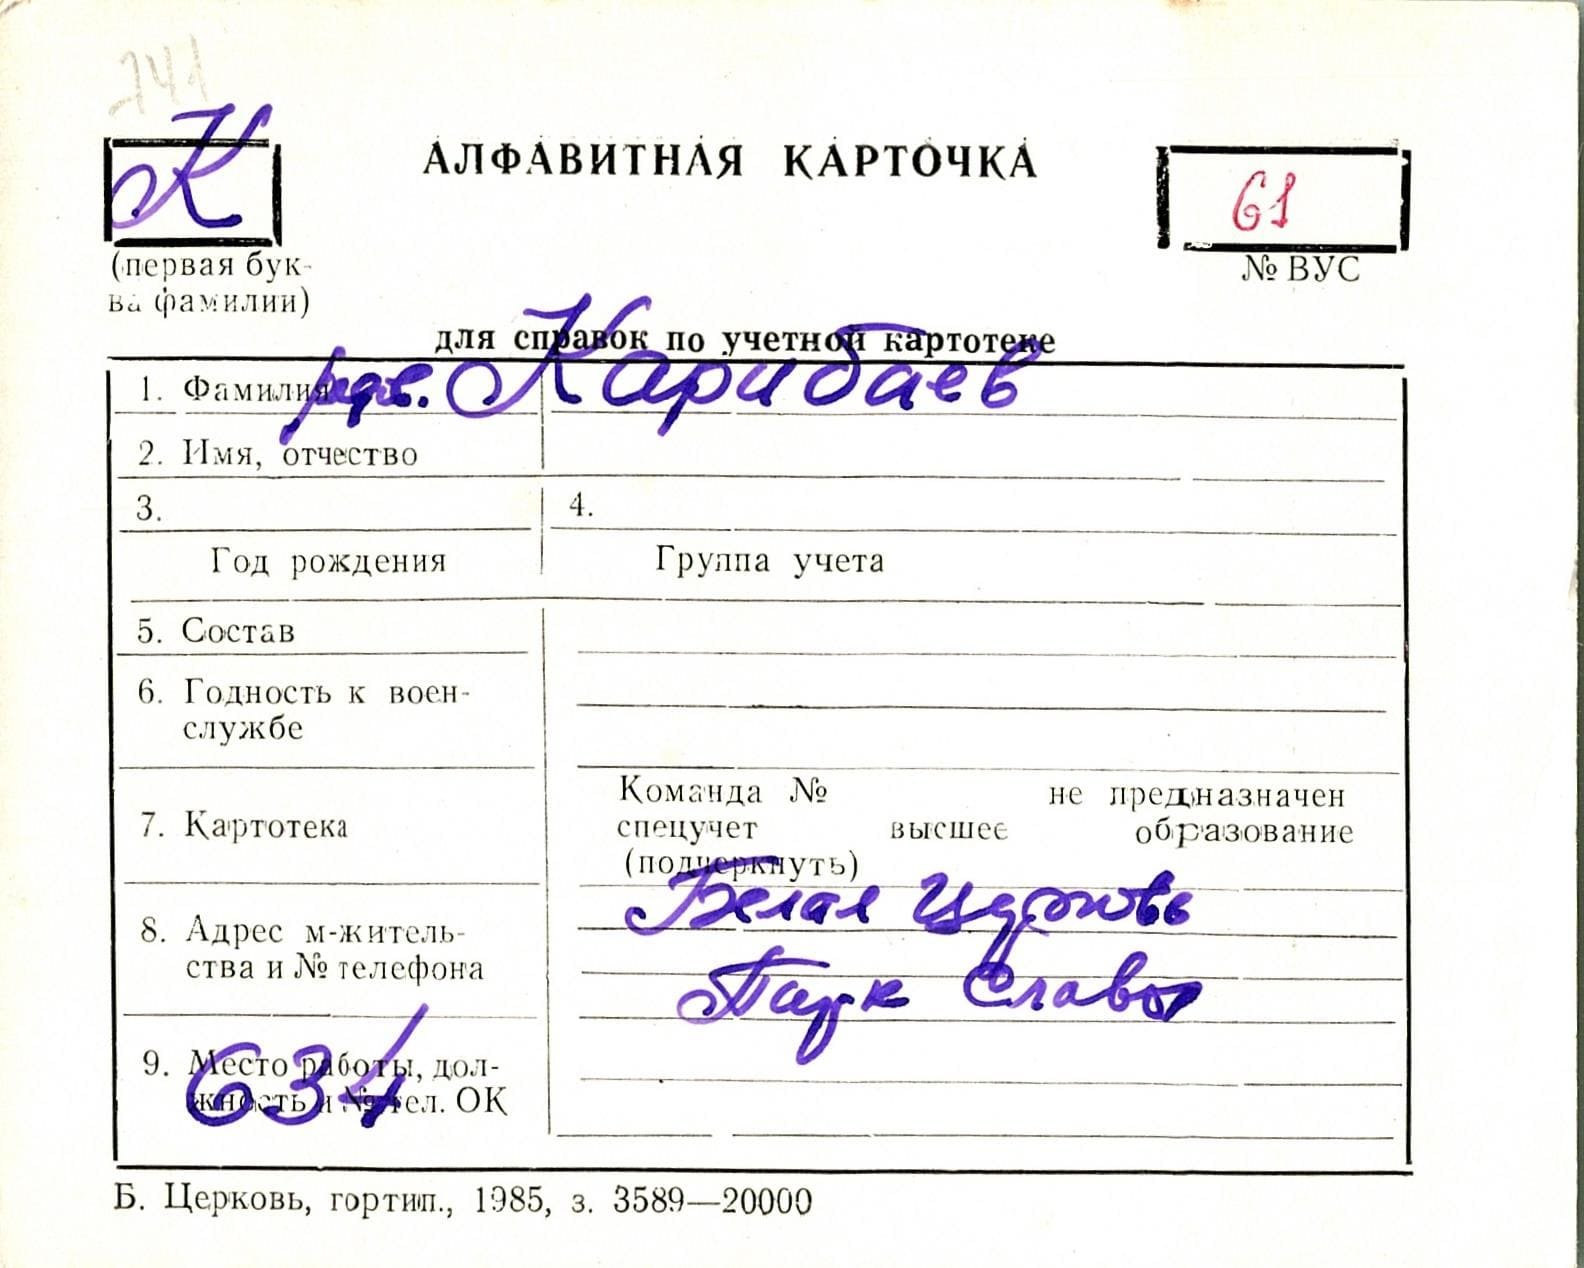 741
К
АЛФАВИТНАЯ КАРТОЧКА
61
(первая бук-
ва фамилии)
№ ВУС
для справок по учетной картотеке
1. Фамилия
ряд. Карибаев
2. Имя, отчество
3.
4.
Год рождения
Группа учета
5. Состав
6. Годность к воен-
службе
7. Картотека
Команда № не предназначен
спецучет высшее образование
(подчеркнуть)
8. Адрес м-житель-
ства и № телефона
Белая Церковь
Парк Славы
9. Место работы, дол-
жность и № тел. ОК
634
Б. Церковь, гортип., 1985, з. 3589—20000